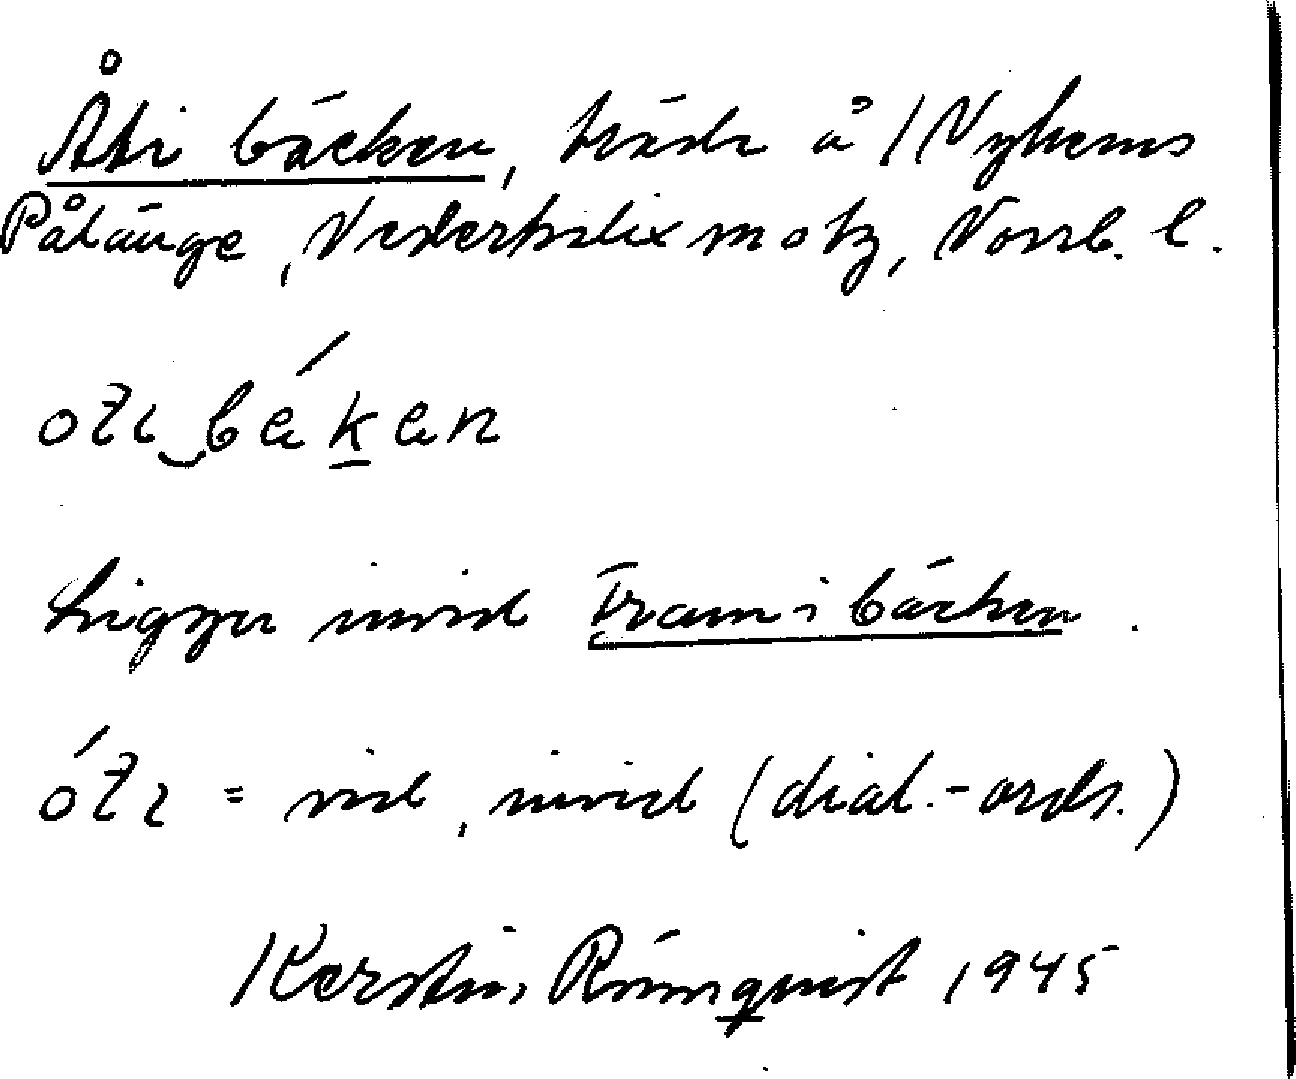 Åti bäcken, träde å 1 Nyhems
Pålänge, Nederkalix sn o tg, Norrb. l.
oti‿bäḵän
Ligger invid Fram i bäcken.
óti = vid, invid (dial.-ord.)
Kerstin Rönnqvist 1945